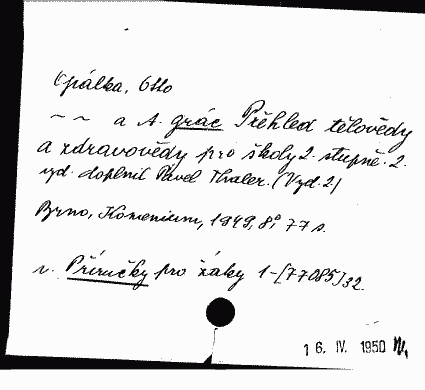 Opálka, Otto
~ ~ a A. Grác Přehled tělovědy
a zdravovědy pro školy 2. stupně. 2.
vyd. doplnil Pavel Thaler. (Vyd. 2)
Brno, Komenium, 1949, 8°, 77 s.
v. Příručky pro žáky 1-[77085] 32.
16. IV. 1950